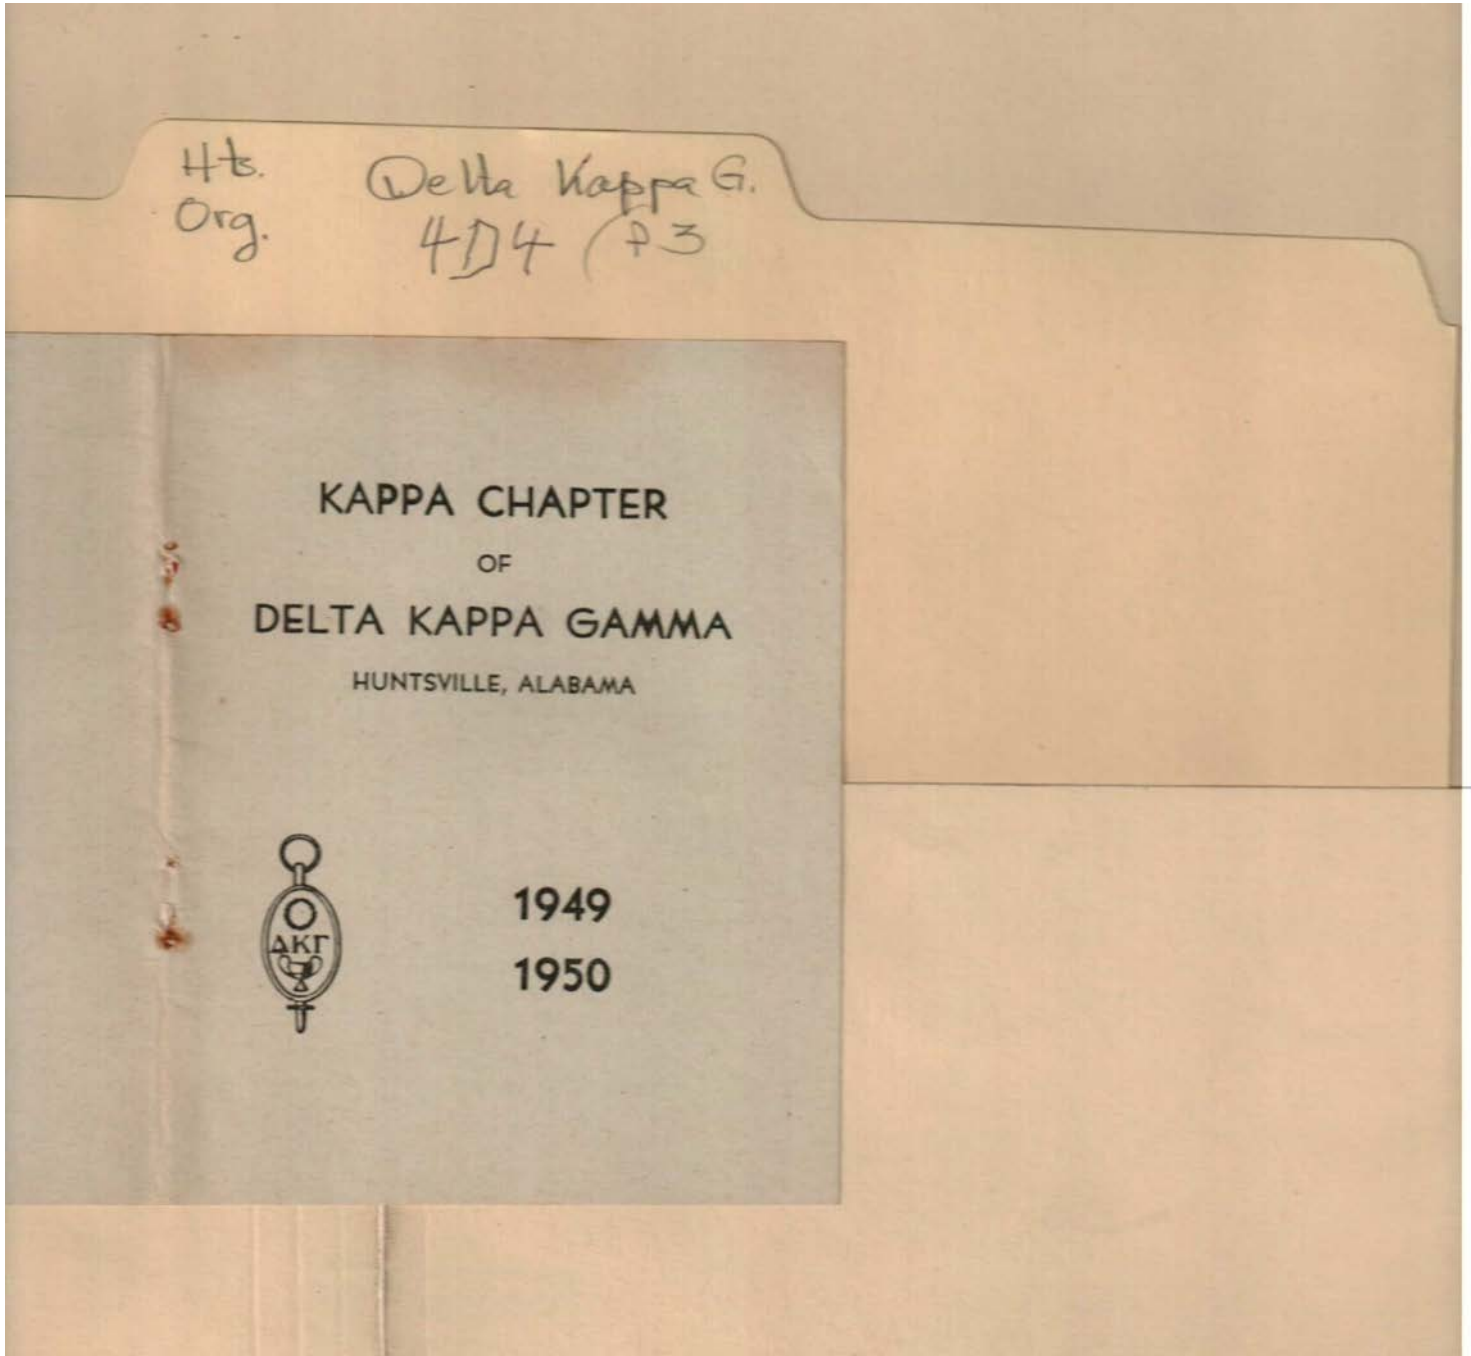 Hts. Delta Kappa G.
Org. 4D4 (P3
KAPPA CHAPTER
OF
DELTA KAPPA GAMMA
HUNTSVILLE, ALABAMA
ΔΚΓ
1949
1950